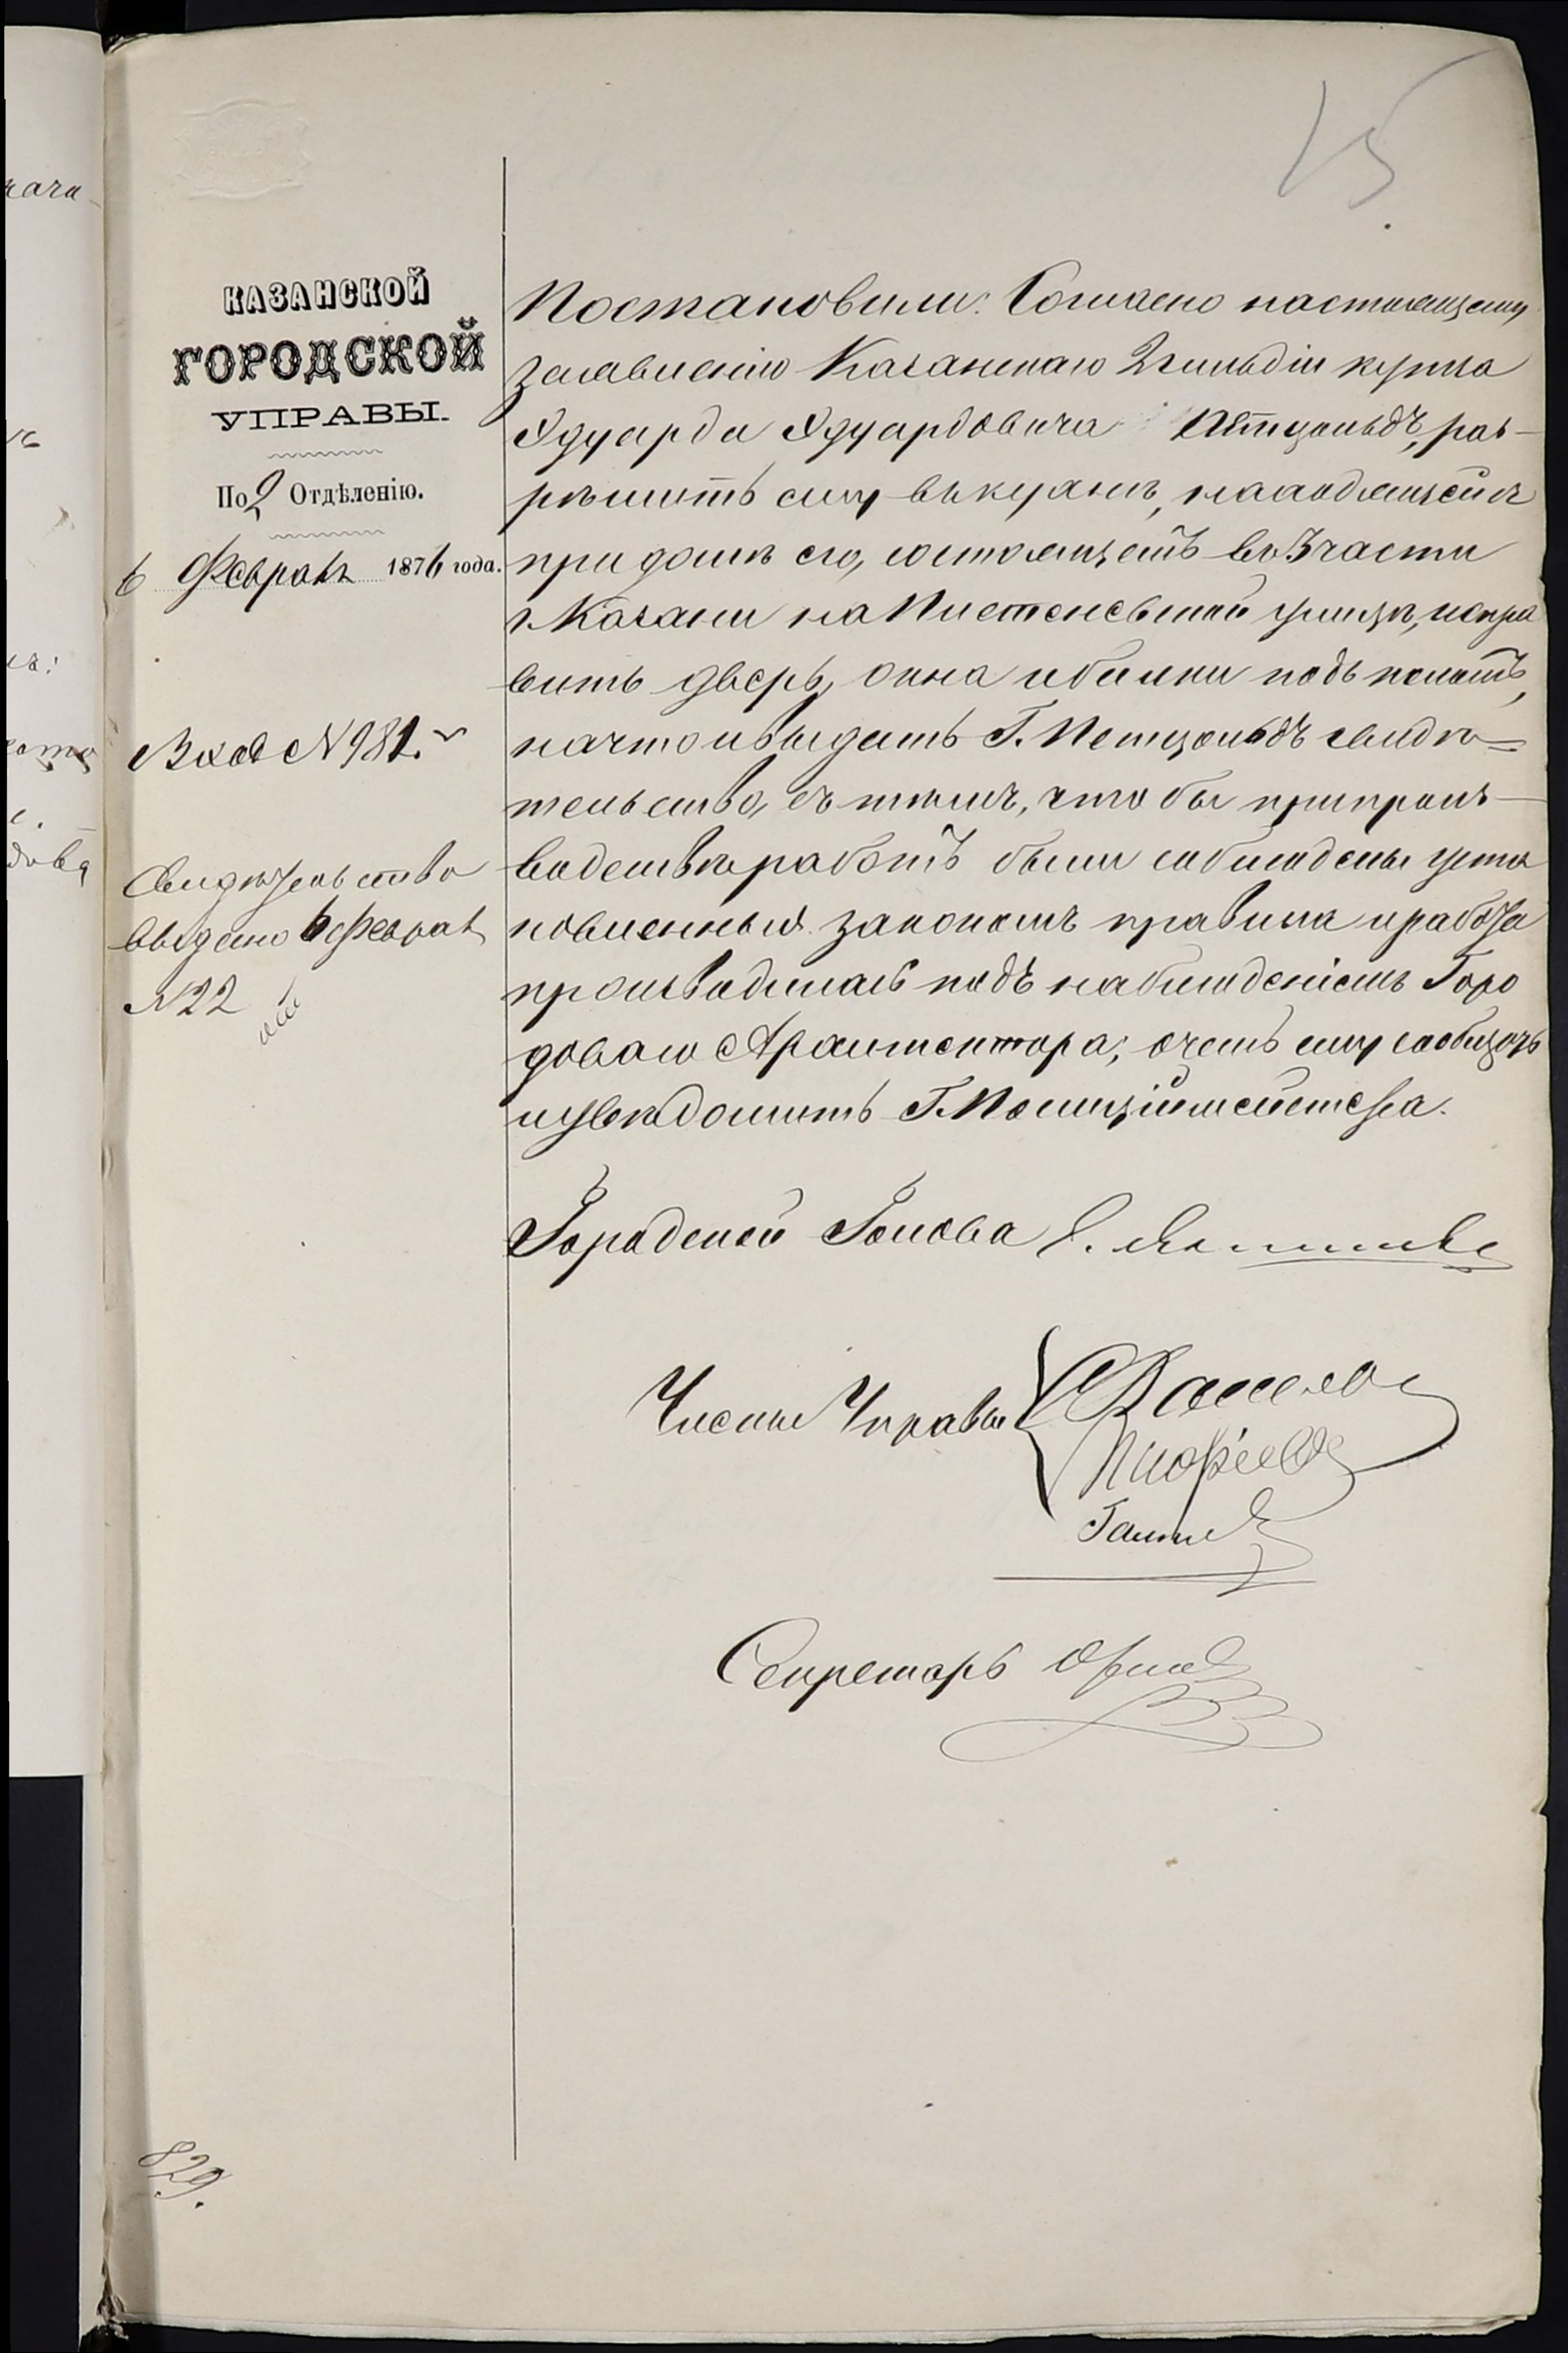 15.
КАЗАНСКОЙ
ГОРОДСКОЙ
УПРАВЫ.
По 2 Отдѣленію.
6 Февраля 1876 года.
Вход № 981.
Свидѣтельство
выдано 6 Феврал
№ 22
829.
Постановили: Согласно настоящему
заявленію Казанскаго 2 гильдіи купца
Эдуарда Эдуардовича Петцольдъ, раз-
рѣшить ему въ кухнѣ, находящейся
при домѣ его, состоящемъ въ 3 части
г. Казани на Поперечной улицѣ, испра
вить дверь, окна и балки подъ полатъ,
на что и выдать Г. Петцольдъ свидѣ=
тельство, съ тѣмъ, что бы при произ-
водствѣ работъ были соблюдены уста
новленныя закономъ правила и работа
производилась подъ наблюденіемъ Горо
доваго Архитектора; о чемъ ему сообщить
и увѣдомить Г. Полиціймейстера.
Городской Голова Е.
Члены Управы
Секретарь